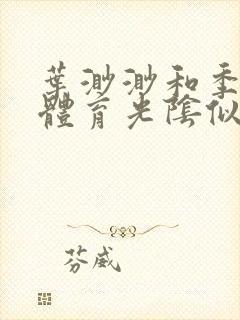 葉渺渺和季
體育光陰似
芬威